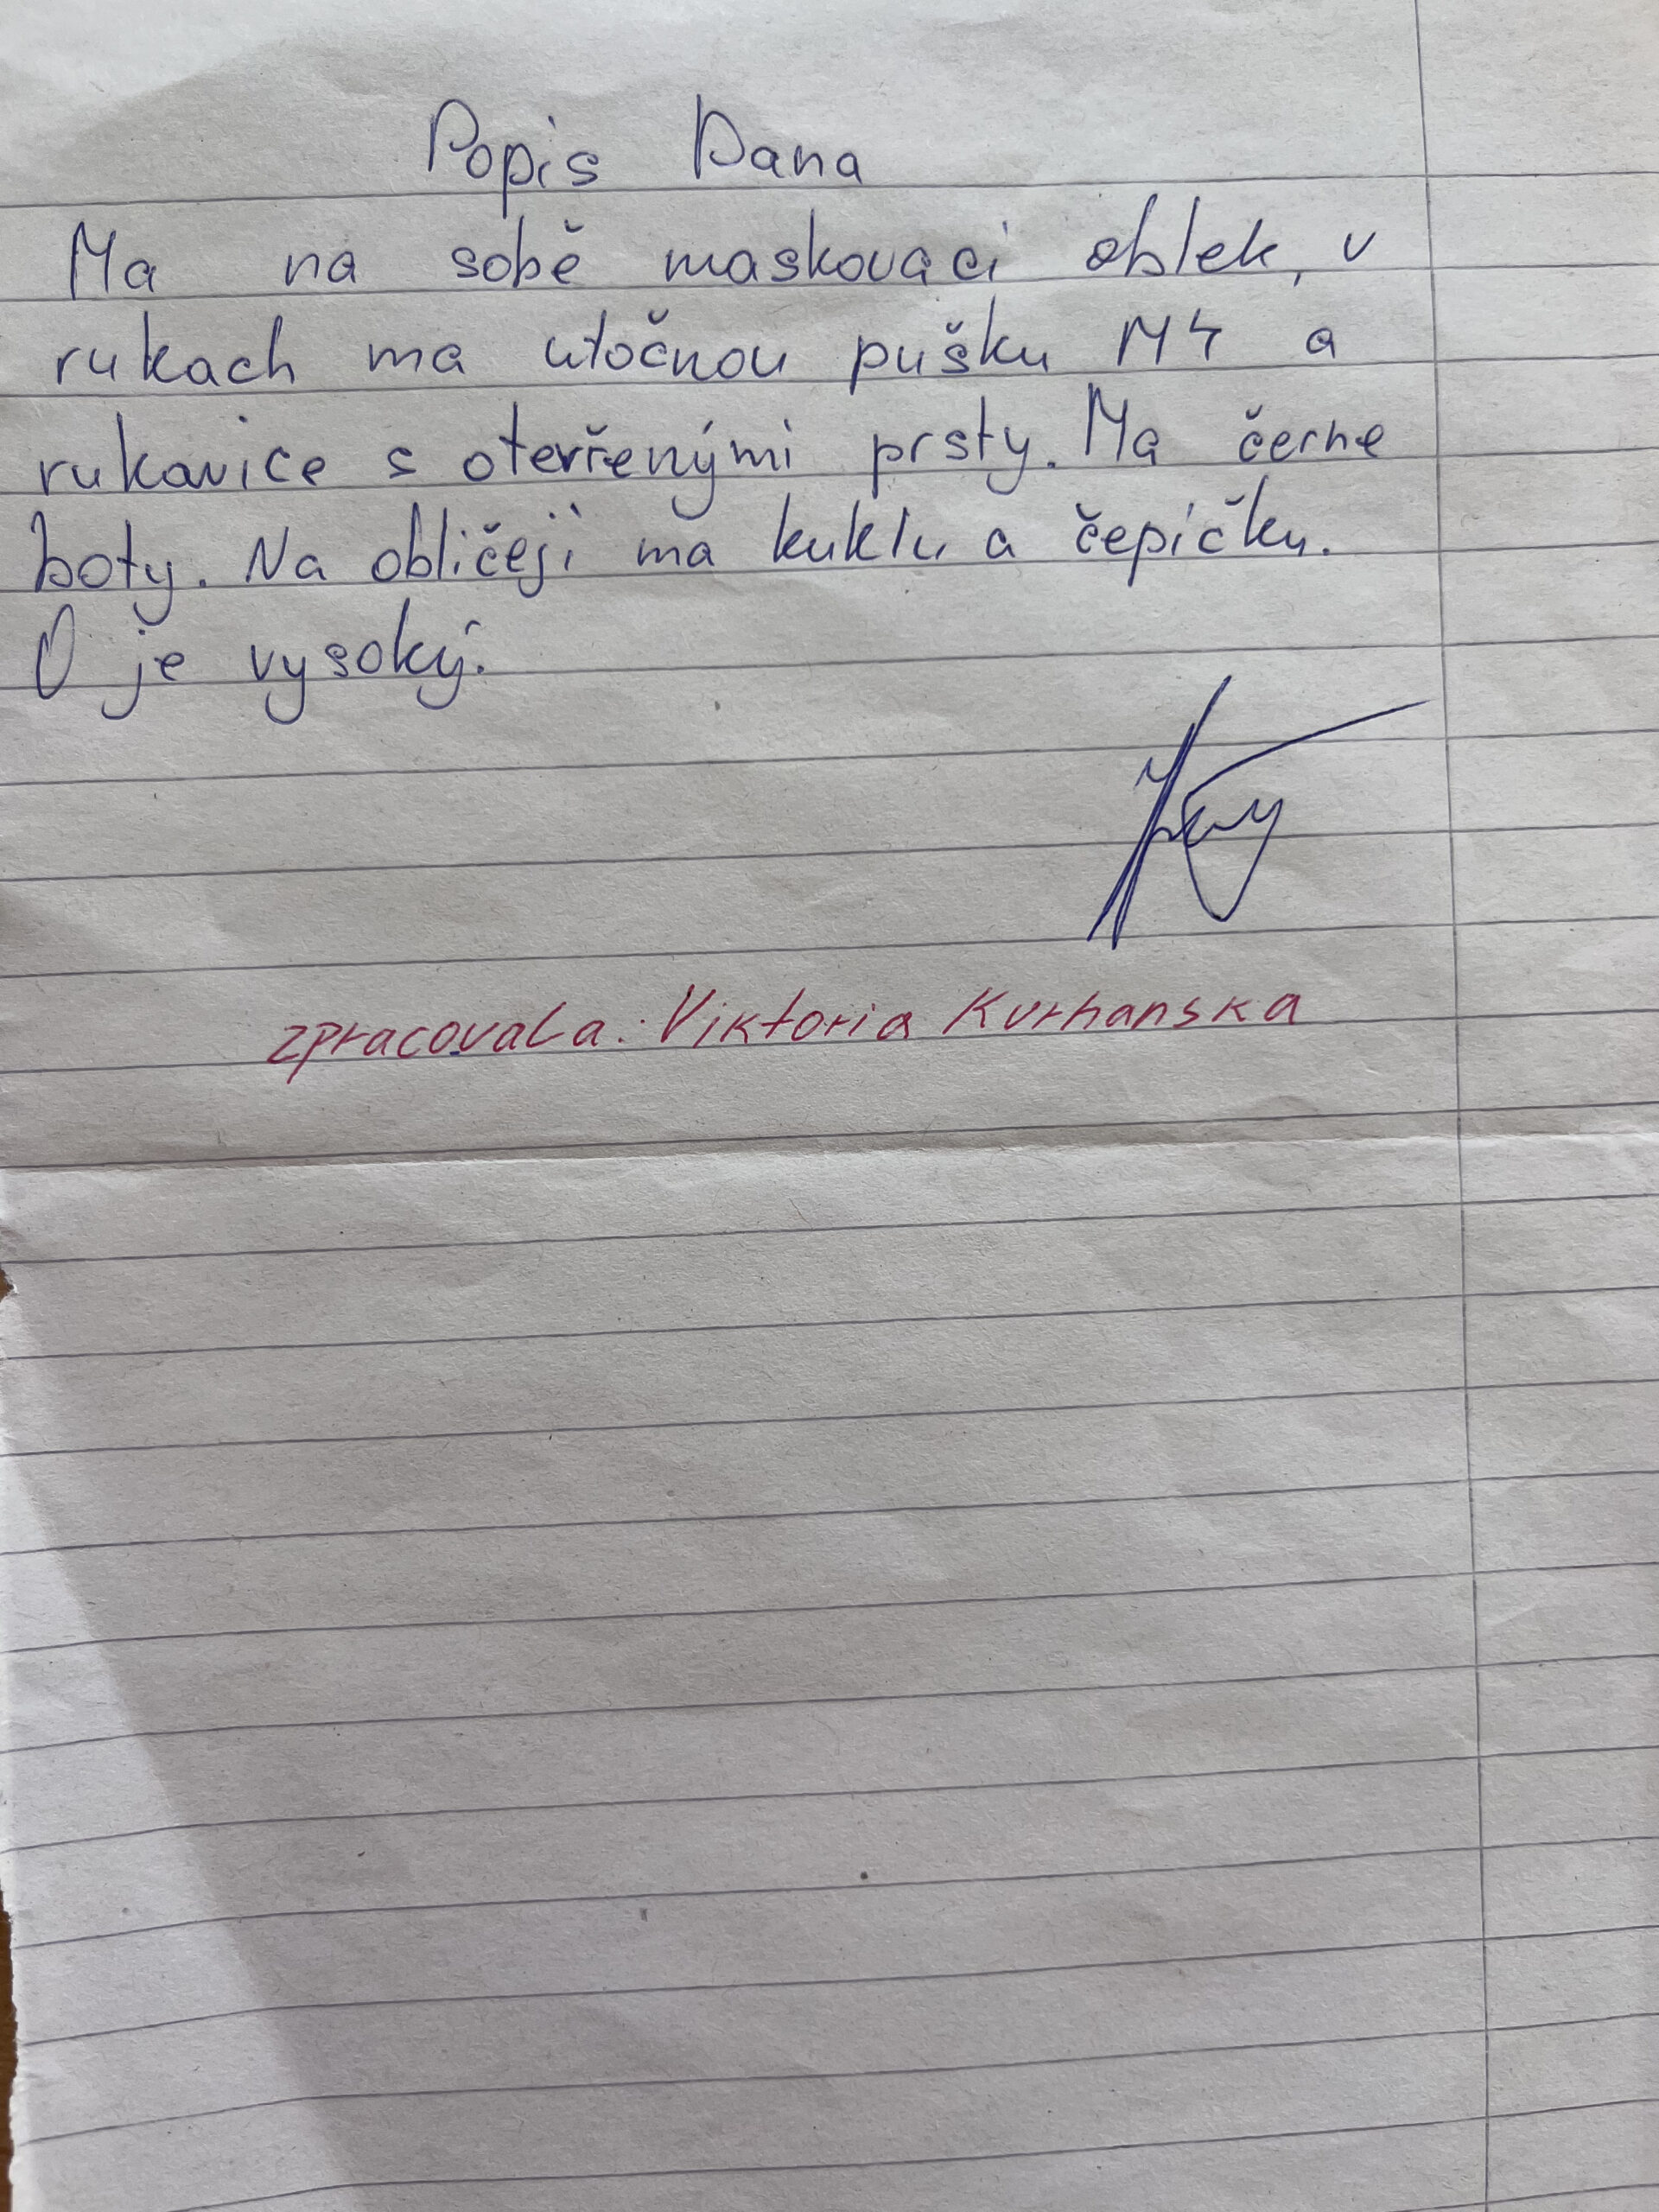 Popis Dana
Ma na sobě maskovaci oblek, v
rukach ma utočnou pušku M4 a
rukavice s otevřenými prsty. Ma černe
boty. Na obličeji ma kuklu a čepičku.
O je vysoký.
zpracovala: Viktoria Kurhanska